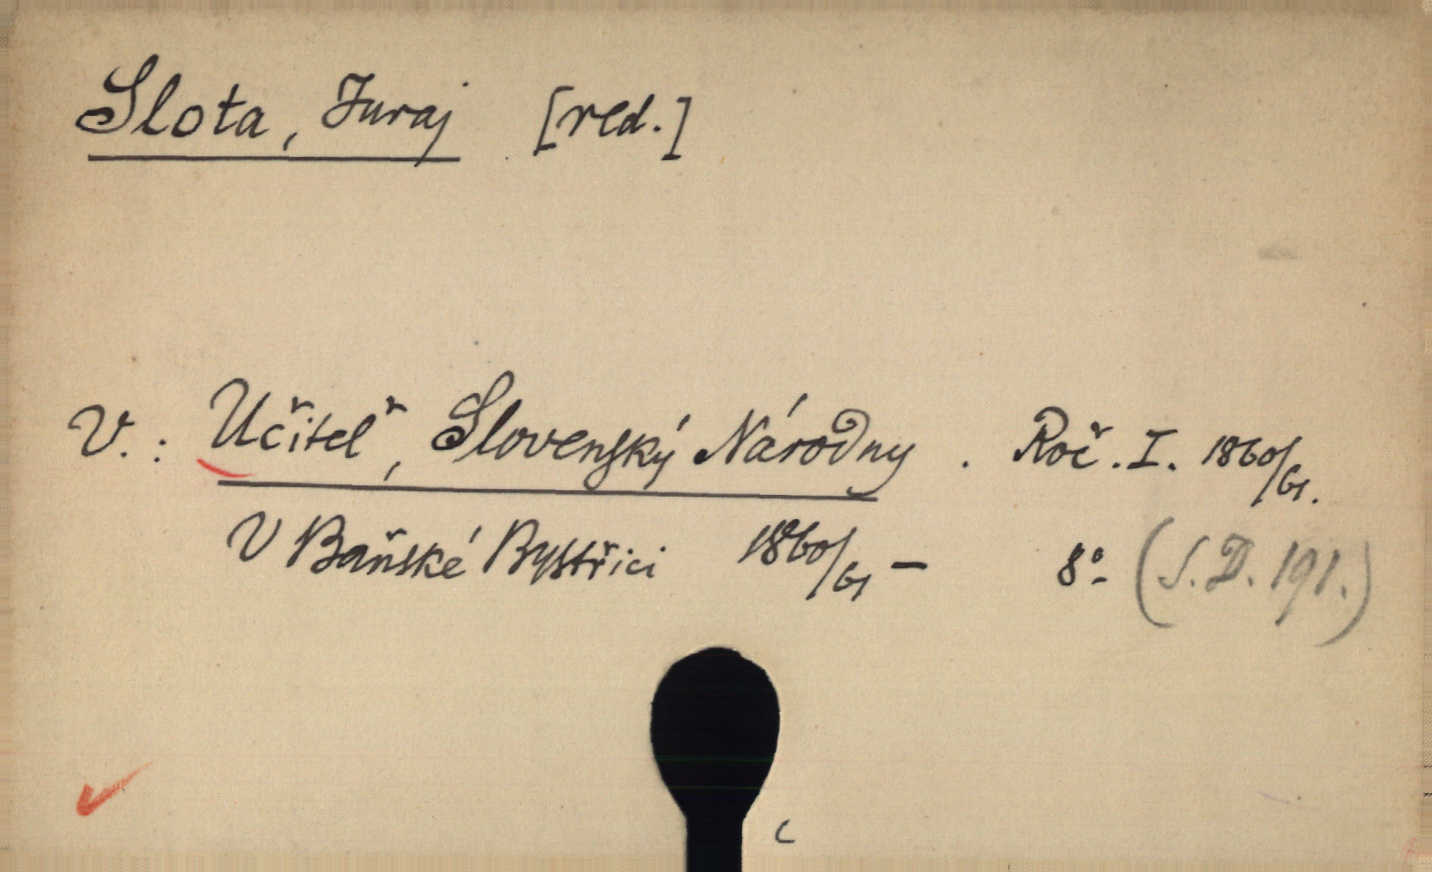 Slota, Juraj [red.]
V.: Učiteľ, Slovenský Národny. Roč. I. 1860/61.
V Baňské Bystřici 1860/61 – 8º (S.D. 191.)
c